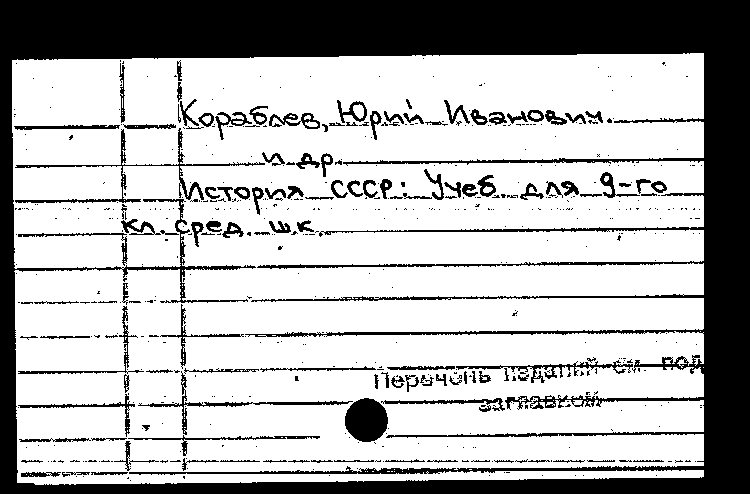 Кораблев, Юрий Иванович.
и др.
История СССР: Учеб. для 9-го
кл. сред. шк.
Перечень изданий см. под
заглавием